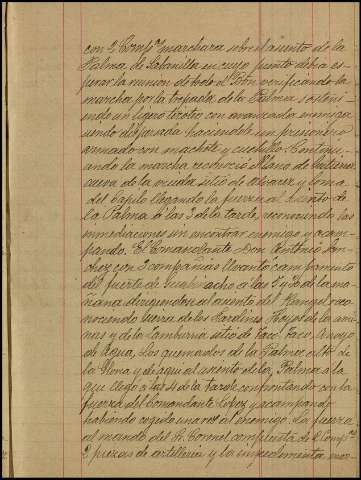 con 2 Compªs marchara sobre el asiento de la
Palma de Sabanilla en cuyo punto debia es-
perar la reunion de todo el Bon verificando la
marcha por la bajada de la Palma sosteni-
endo un ligero tiroteo con avanzada enemiga
siendo desalojada haciendole un prisionero
armado con machete y cuchillo. Continu-
ando la marcha reconoció Llano de la tienda
cueva de la viuda sitio de Alvarez y loma
del Capilo llegando la fuerza al Asiento de
la Palma á las 3 de la tarde, reconociendo las
inmediaciones sin encontrar enemigo y acam-
pando. El Comandante Don Antonio San-
chez con 2 compañias llevantó campamento
del fuerte de Guabinacho a las 5 y 30 de la ma-
ñana dirigiendose al asiento del Rangel reco-
nociendo tierra de los Jardines, Hoyos de la
y de la Tamburria sitio de Taco Taco, Arroyo
de Agua, Los quemados de la Palma, el Rl de
la Gloria y de aqui al asiento de la Palma a la
que llegó a las 4 de la tarde confrontando con la
fuerza del Comandante Lopez y acampando
habiendo cogido una res al enemigo. La fuerza
al mando del Sr Coronel compuesta de 2 Compªs
2 piezas de artilleria y la impedimenta mar-